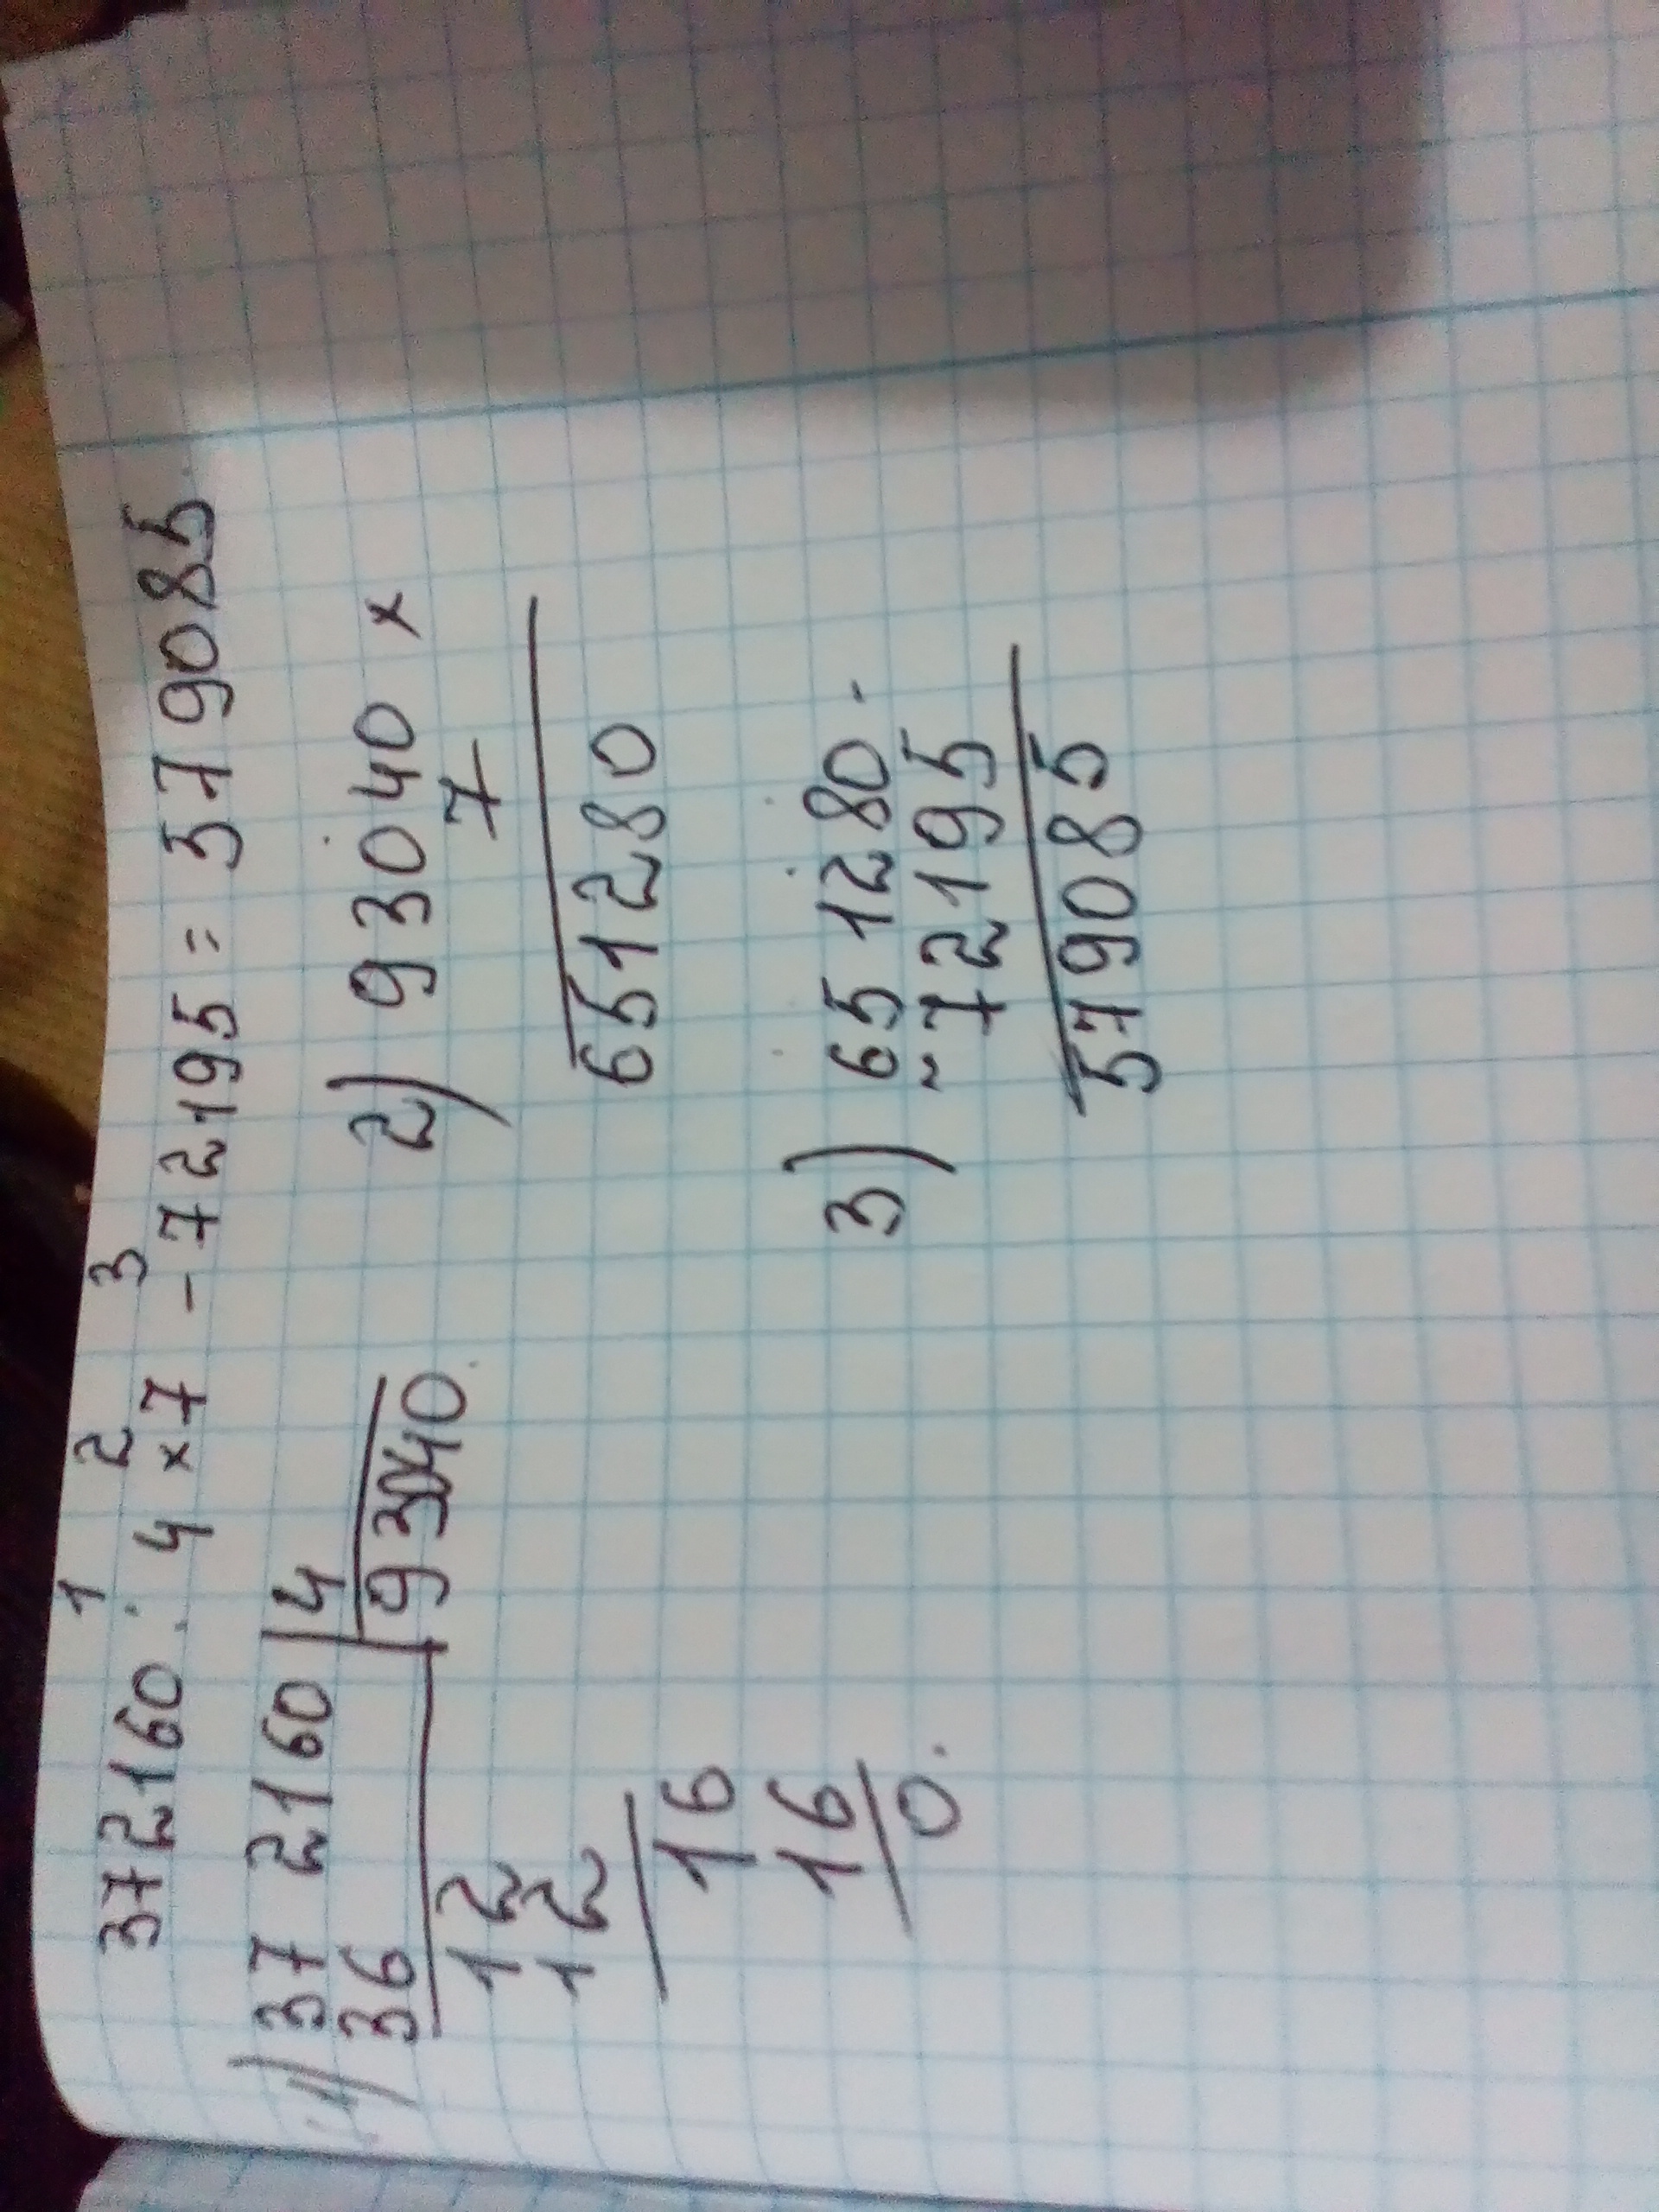 1 2 3
372160 : 4 × 7 - 72195 = 579085
1) 372160 | 4
36 93040
12
12
16
16
0
2) 93040 ×
7
651280
3) 651280
- 72195
579085